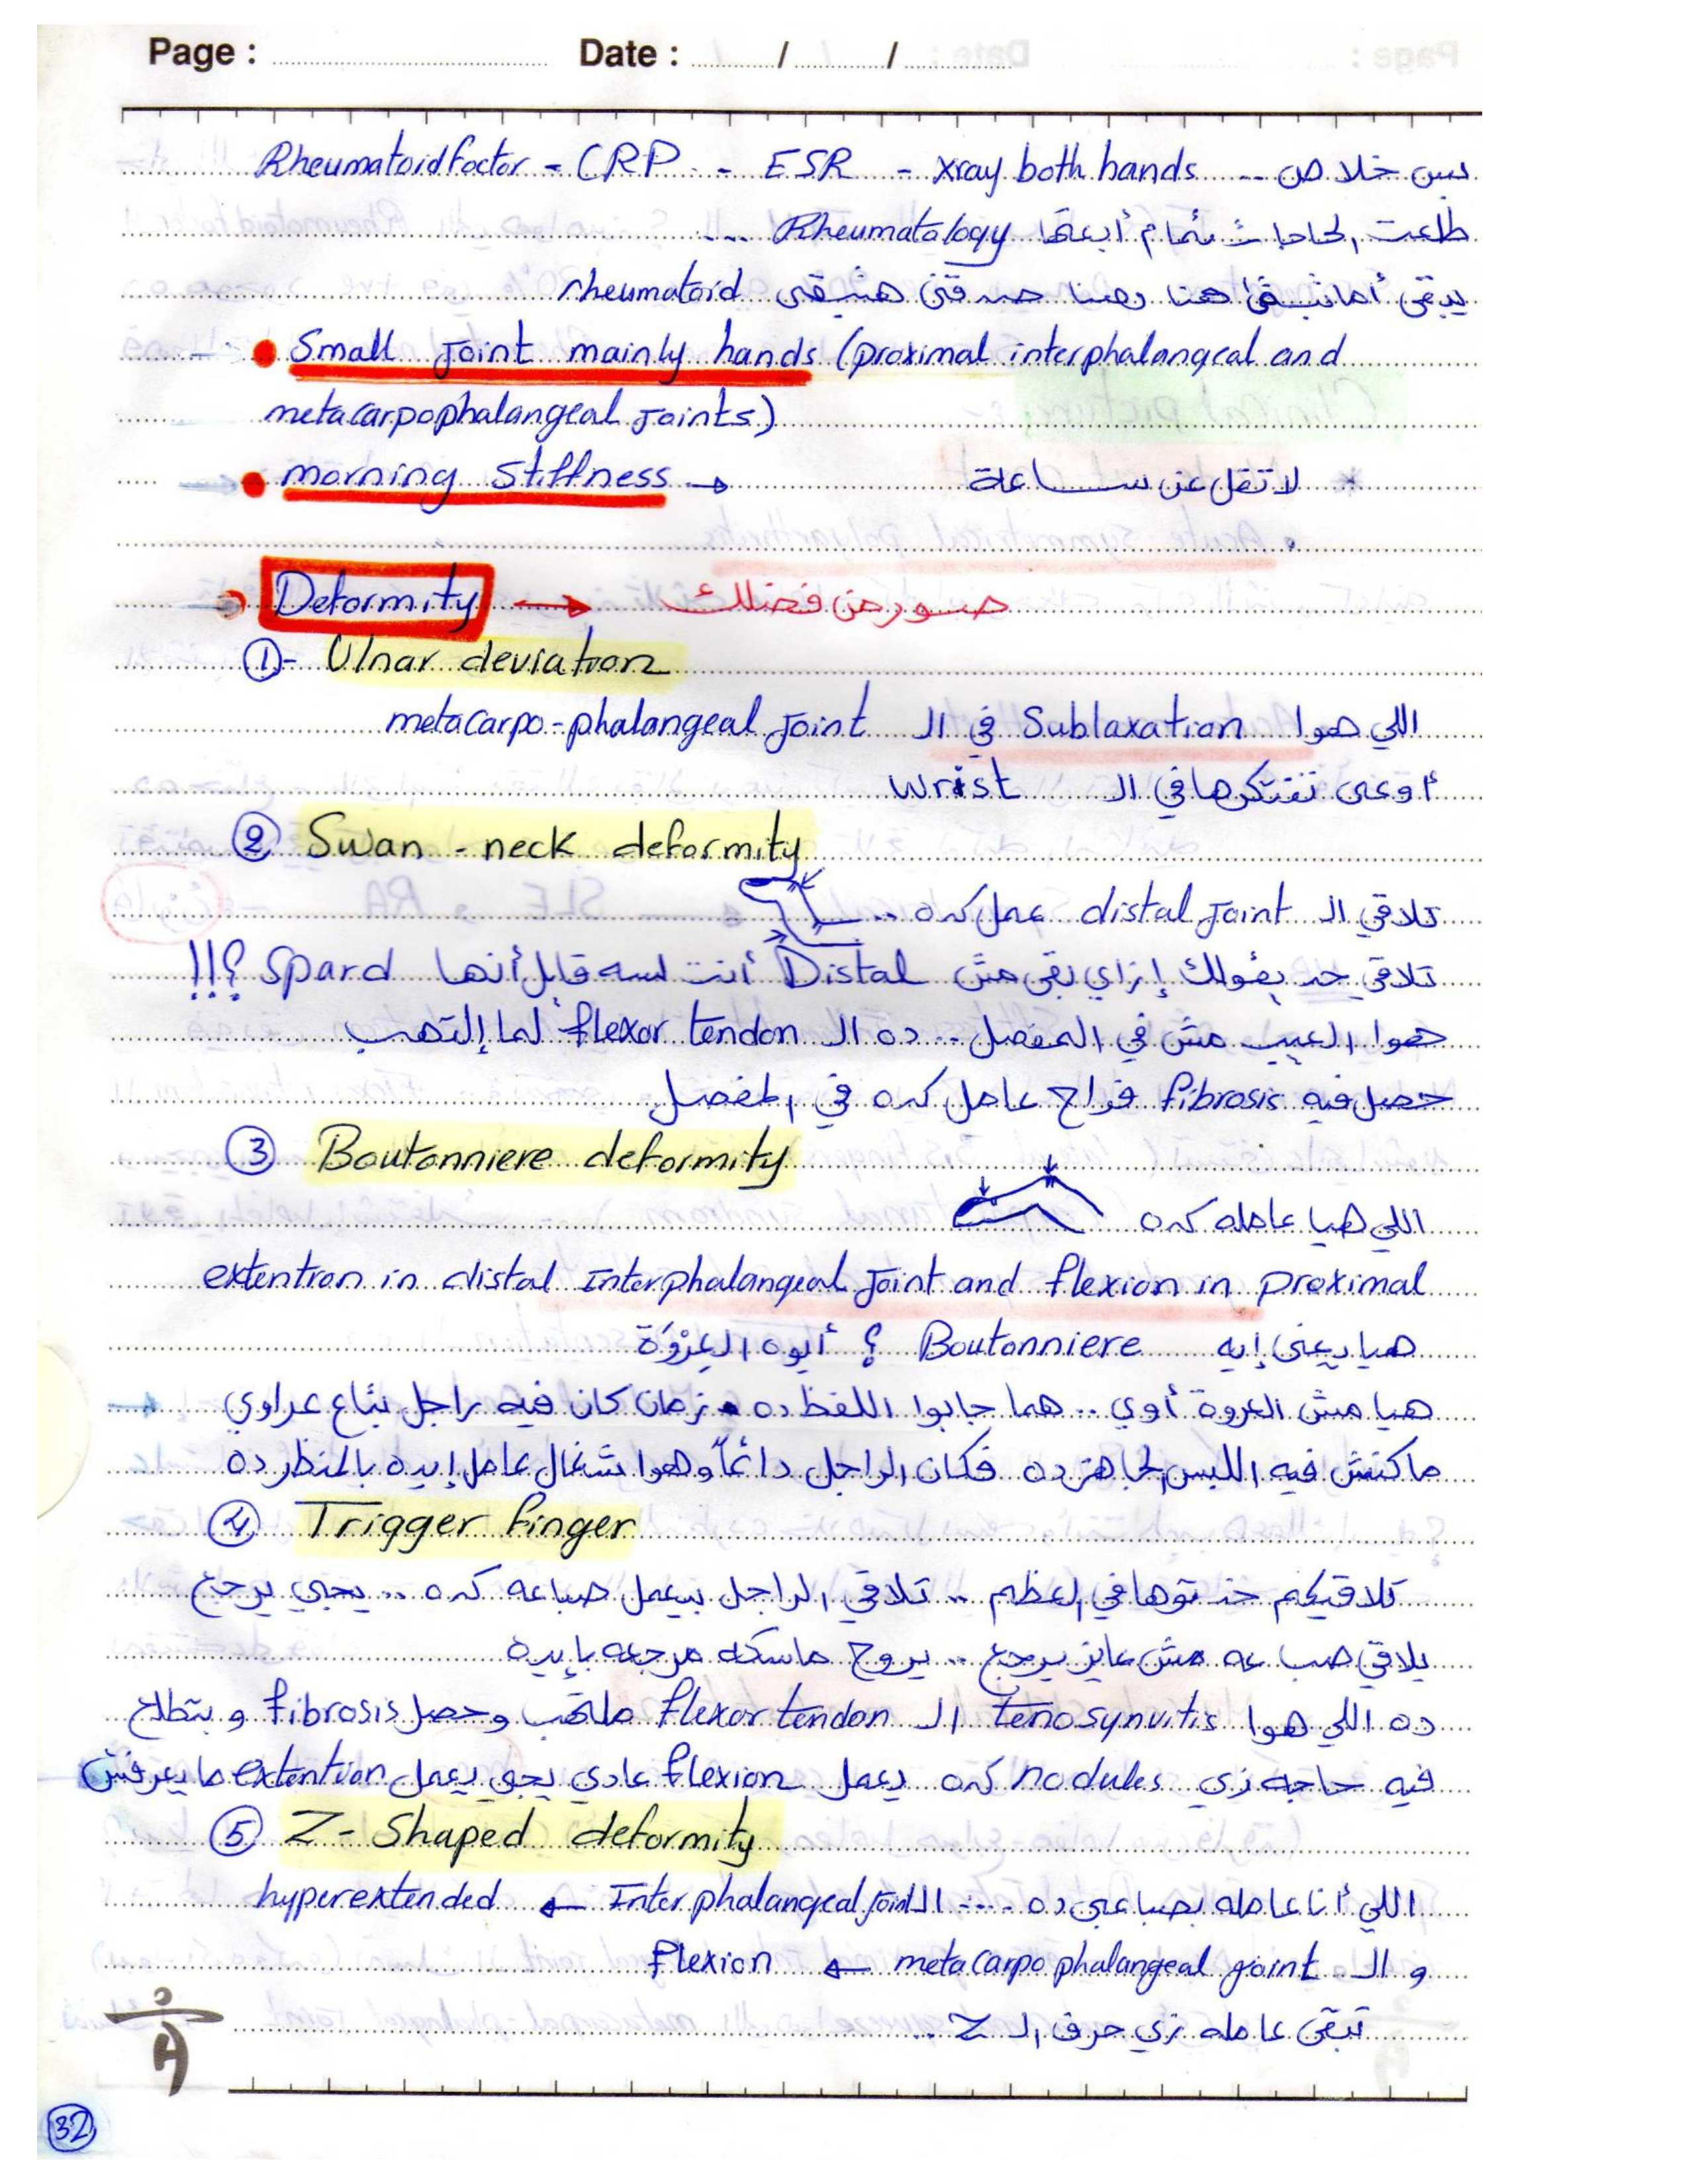 Page : Date : / /
بس خلاص .. Rheumatoid factor - CRP - ESR - xray both hands
طلعت الحاجات تمام أبعتها Rheumatology ...
يبقى أما نبقى هنا وهنا هنبقى rheumatoid
• Small joint mainly hands (proximal interphalangeal and
metacarpophalangeal joints)
• morning stiffness → لا تقل عن ســاعة
Deformity → صور من فضلك
①- Ulnar deviation
اللي هوا Sublaxation في الـ metacarpo-phalangeal joint
أوعى تفتكرها في الـ wrist
② Swan - neck deformity
تلاقي الـ distal joint عمل كده ..
تلاقي حد يقولك إزاي بقى مش Distal أنت لسه قايل أنها Spard ؟!!
هوا العيب مش في المفصل .. ده الـ flexor tendon لما إلتهب
حصل فيه fibrosis فراح عامل كده في المفصل
③ Boutonniere deformity
اللي هيا عامله كده
extention in distal interphalangeal joint and flexion in proximal
هيا يعني إيه Boutonniere ؟ أيوه العِرْوَة
هيا مش العروة أوي .. هما جابوا اللفظ ده • زمان كان فيه راجل بتاع عراوي
ماكنش فيه اللبس الجاهز ده فكان الراجل دائماً وهوا شغال عامل إيده بالمنظر ده
④ Trigger finger
تلاقيكم خدتوها في العظم .. تلاقي الراجل بيعمل صباعه كده .. يجي يرجع
يلاقي صباعه مش عايز يرجع .. يروح ماسكه مرجعه بإيده
ده اللي هوا tenosynvitis الـ flexor tendon ملتهب وحصل fibrosis و بتطلع
فيه حاجه زي nodules كده يعمل flexion عادي يجي يعمل extention ما يعرفش
⑤ Z- Shaped deformity
اللي أنا عامله بصباعي ده .... الـ Interphalangeal joint ← hyperextended
و الـ metacarpo phalangeal joint ← flexion
تبقى عامله زي حرف الـ Z ..
32